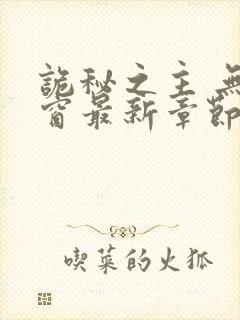 詭秘之主 無
窗最新章節
喫菜的火狐